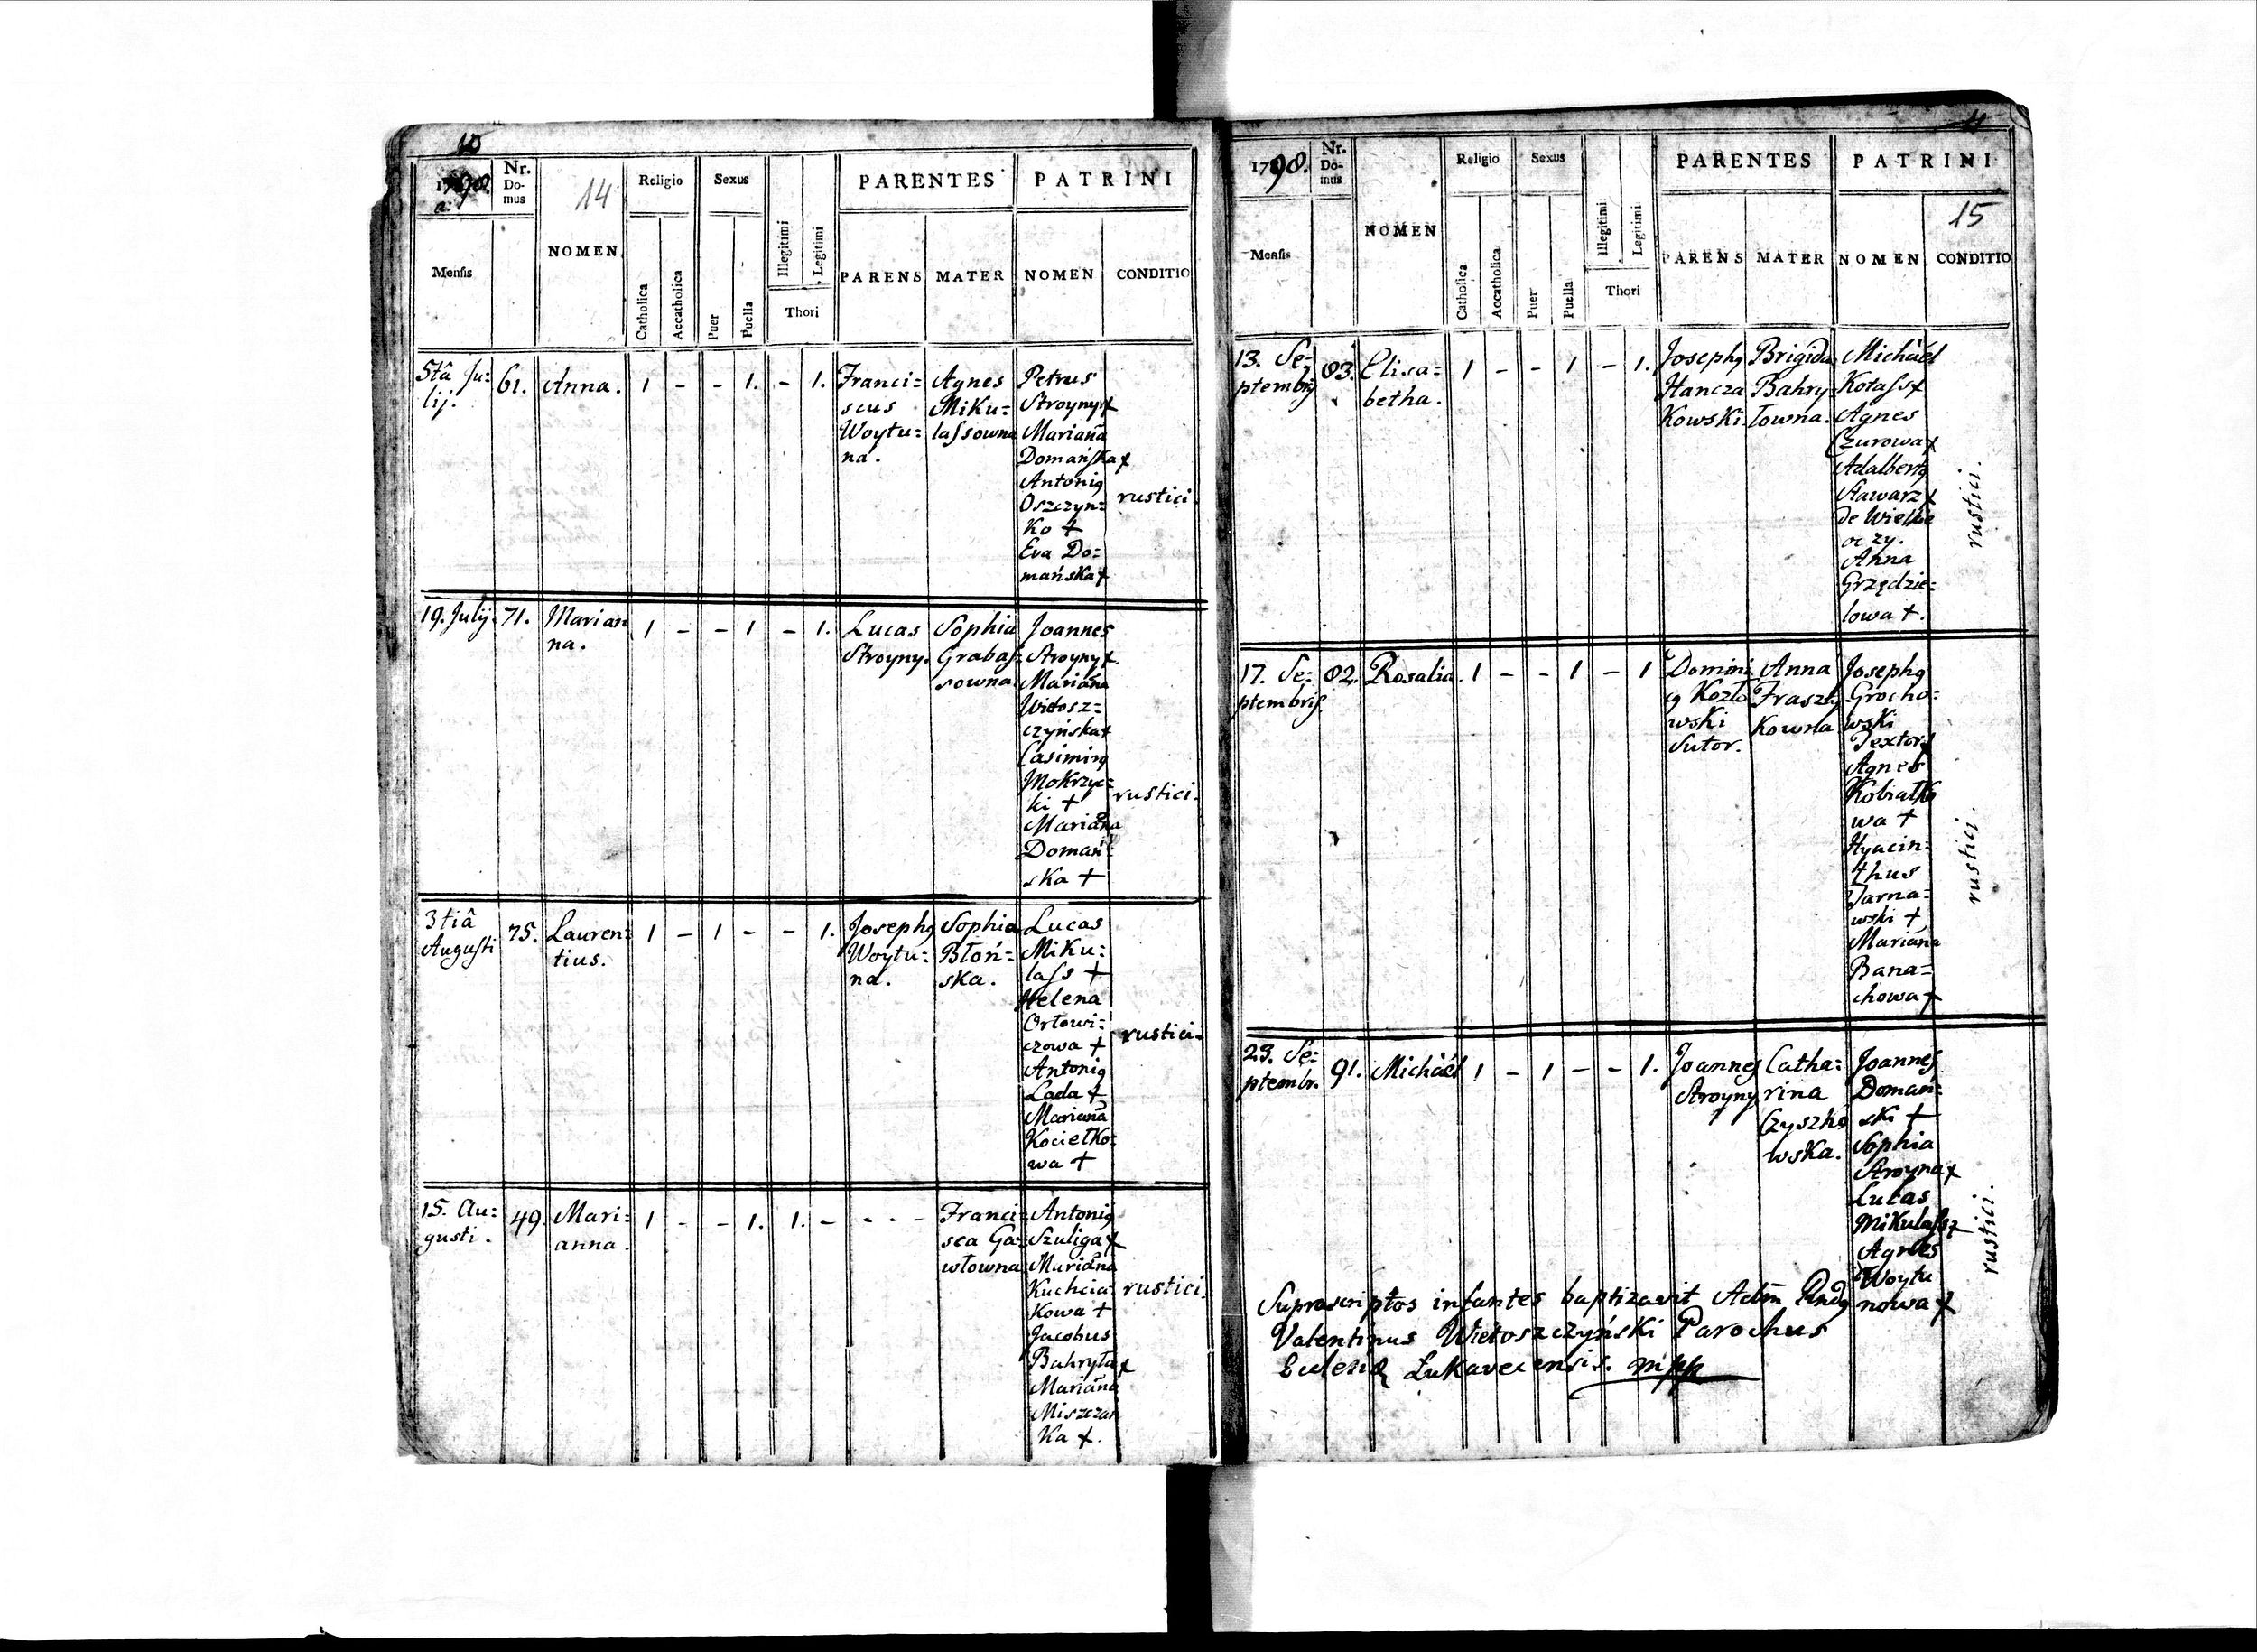 10
1790.
a:
Nr.
Do-
mus
14
NOMEN
Religio
Sexus
Illegitimi
Legitimi
PARENTES
PATRINI
Mensis
Catholica
Accatholica
Puer
Puella
Thori
PARENS
MATER
NOMEN
CONDITIO
5tâ Ju=
lij.
61.
Anna.
1 - - 1. - 1.
Franci=
scus
Woytu=
na.
Agnes
Miku=
lassowna
Petrus
Stroyny +
Mariana
Domańska +
Antonig
Oszczyn=
ko +
Eva Do=
mańska +
rustici.
19. Julij.
71.
Marian
na.
1 - - 1 - 1.
Lucas
Stroyny.
Sophia
Grabas=
sowna.
Joannes
Stroyny +
Mariana
Wietosz=
czyńska +
Casimirg
Mokrzyc=
ki +
Mariana
Domań=
ska +
rustici.
3tiâ
Augusti
75.
Lauren=
tius.
1 - 1 - - 1.
Josephg
Woytu=
na.
Sophia
Błoń=
ska.
Lucas
Miku=
lass +
Helena
Orłowi=
czowa +
Antonig
Lada +
Mariana
Kociełko=
wa +
rustici.
15. Au=
gusti.
49.
Mari=
anna.
1 - - 1. 1. -
- - - -
Franci=
sca Ga=
włowna
Antonig
Szuliga +
Mariana
Kuchcia=
kowa +
Jacobus
Bahryła +
Mariana
Miszczan
ka +.
rustici.
11
1790.
Nr.
Do-
mus
NOMEN
Religio
Sexus
Illegitimi
Legitimi
PARENTES
PATRINI
15
Mensis
Catholica
Accatholica
Puer
Puella
Thori
PARENS
MATER
NOMEN
CONDITIO
13. Se=
ptembris
83.
Elisa=
betha.
1 - - 1 - 1.
Josephg
Hancza
Kowski.
Brigida
Bahry=
łowna.
Michäel
Kotass +
Agnes
Czurowa +
Adalbertg
Stawarz +
de Wielkie
oczy.
Anna
Grzędzie=
lowa +.
rustici.
17. Se=
ptembris.
82.
Rosalia.
1 - - 1 - 1
Domini
cg Kozło
wski
Sutor.
Anna
Fraszt
kowna
Josephg
Grocho=
wski
Textor +
Agnes
Kobiałko
wa +
Hyacin=
thus
Tarna=
wski +
Mariana
Bana=
chowa +
rustici.
29. Se=
ptembr.
91.
Michäel
1 - 1 - - 1.
Joannes
Stroyny
Catha=
rina
Czyszko
wska.
Joannes
Domań=
ski +
Sophia
Stroyna +
Lucas
Mikulass +
Agnes
Woytu
nowa +
rustici.
Suprascriptos infantes baptizavit Adm Rndg
Valentinus Wietoszczyński Parochus
Lukavecensis. mpp